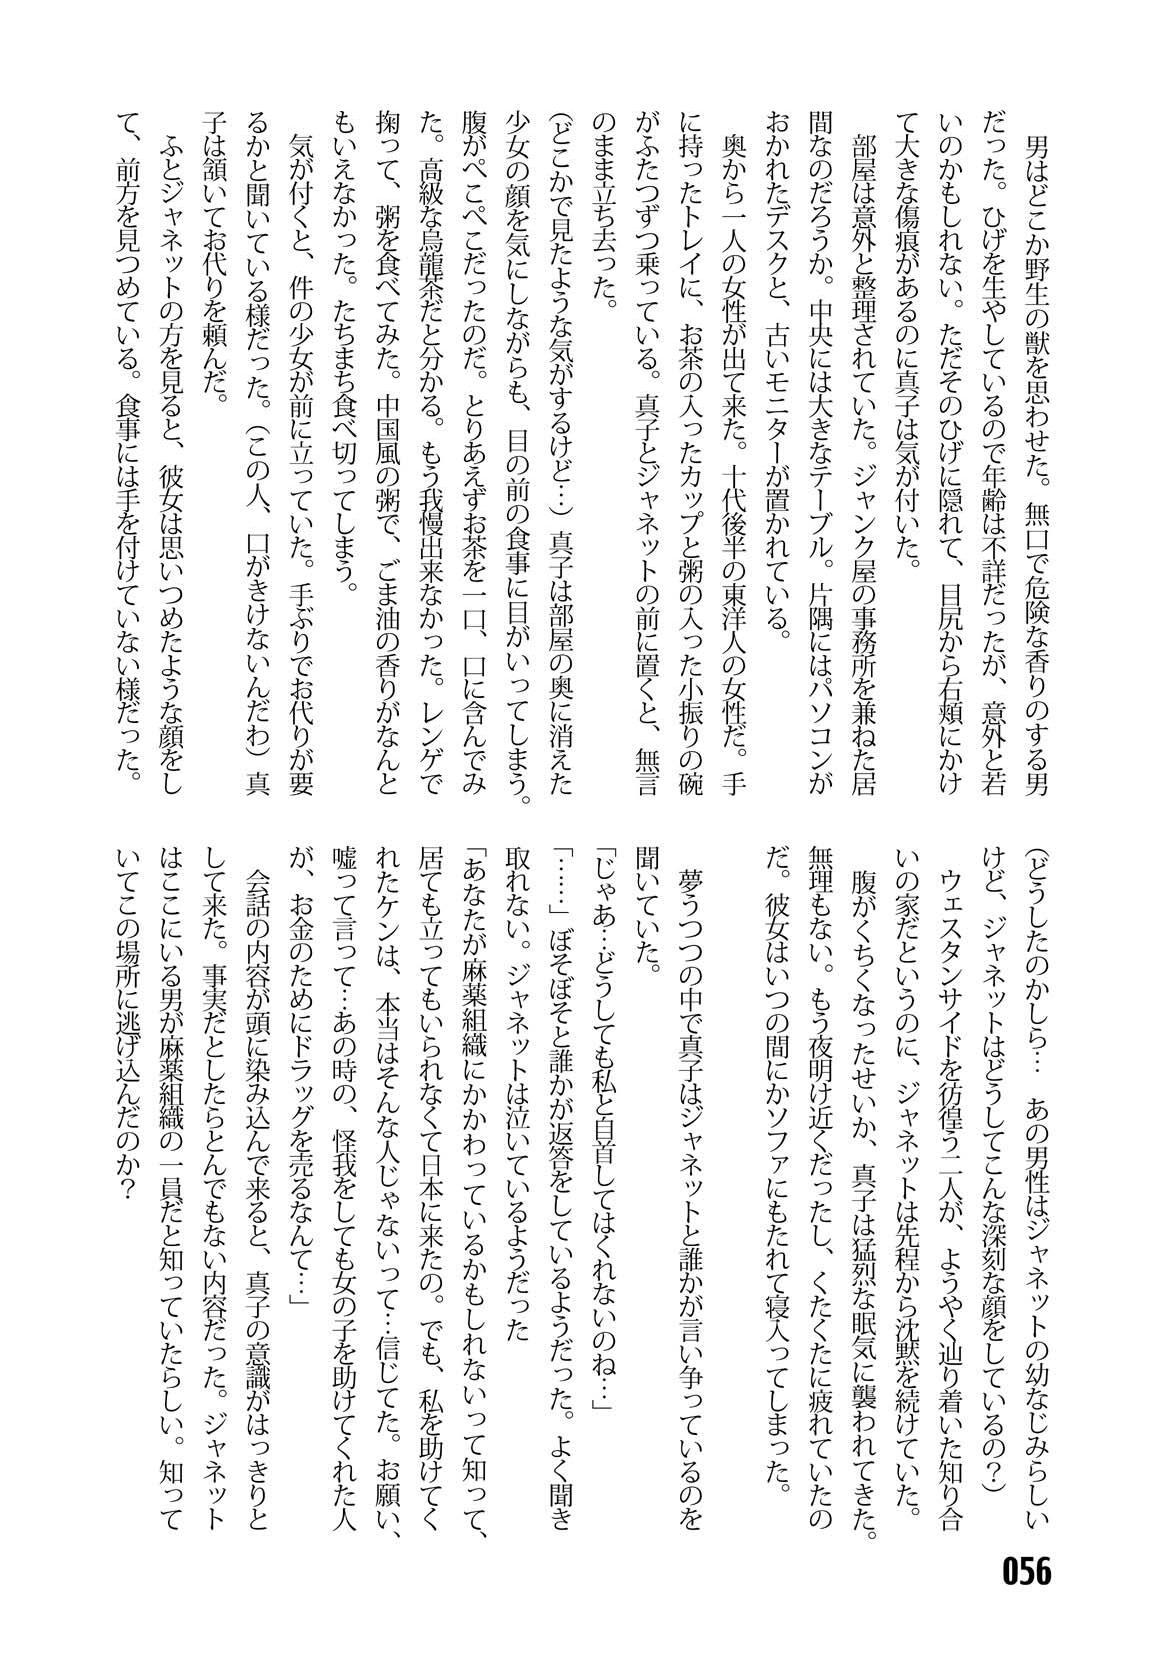 男はどこか野生の獣を思わせた。無口で危険な香りのする男
だった。ひげを生やしているので年齢は不詳だったが、意外と若
いのかもしれない。ただそのひげに隠れて、目尻から右頬にかけ
て大きな傷痕があるのに真子は気が付いた。
　部屋は意外と整理されていた。ジャンク屋の事務所を兼ねた居
間なのだろうか。中央には大きなテーブル。片隅にはパソコンが
おかれたデスクと、古いモニターが置かれている。
　奥から一人の女性が出て来た。十代後半の東洋人の女性だ。手
に持ったトレイに、お茶の入ったカップと粥の入った小振りの碗
がふたつずつ乗っている。真子とジャネットの前に置くと、無言
のまま立ち去った。
（どこかで見たような気がするけど…）真子は部屋の奥に消えた
少女の顔を気にしながらも、目の前の食事に目がいってしまう。
腹がぺこぺこだったのだ。とりあえずお茶を一口、口に含んでみ
た。高級な烏龍茶だと分かる。もう我慢出来なかった。レンゲで
掬って、粥を食べてみた。中国風の粥で、ごま油の香りがなんと
もいえなかった。たちまち食べ切ってしまう。
　気が付くと、件の少女が前に立っていた。手ぶりでお代りが要
るかと聞いている様だった。（この人、口がきけないんだわ）真
子は頷いてお代りを頼んだ。
　ふとジャネットの方を見ると、彼女は思いつめたような顔をし
て、前方を見つめている。食事には手を付けていない様だった。
（どうしたのかしら…　あの男性はジャネットの幼なじみらしい
けど、ジャネットはどうしてこんな深刻な顔をしているの？）
　ウェスタンサイドを彷徨う二人が、ようやく辿り着いた知り合
いの家だというのに、ジャネットは先程から沈黙を続けていた。
　腹がくちくなったせいか、真子は猛烈な眠気に襲われてきた。
無理もない。もう夜明け近くだったし、くたくたに疲れていたの
だ。彼女はいつの間にかソファにもたれて寝入ってしまった。
　夢うつつの中で真子はジャネットと誰かが言い争っているのを
聞いていた。
「じゃあ…どうしても私と自首してはくれないのね…」
「……」ぼそぼそと誰かが返答をしているようだった。よく聞き
取れない。ジャネットは泣いているようだった
「あなたが麻薬組織にかかわっているかもしれないって知って、
居ても立ってもいられなくて日本に来たの。でも、私を助けてく
れたケンは、本当はそんな人じゃないって…信じてた。お願い、
嘘って言って…あの時の、怪我をしても女の子を助けてくれた人
が、お金のためにドラッグを売るなんて…」
　会話の内容が頭に染み込んで来ると、真子の意識がはっきりと
して来た。事実だとしたらとんでもない内容だった。ジャネット
はここにいる男が麻薬組織の一員だと知っていたらしい。知って
いてこの場所に逃げ込んだのか？
056